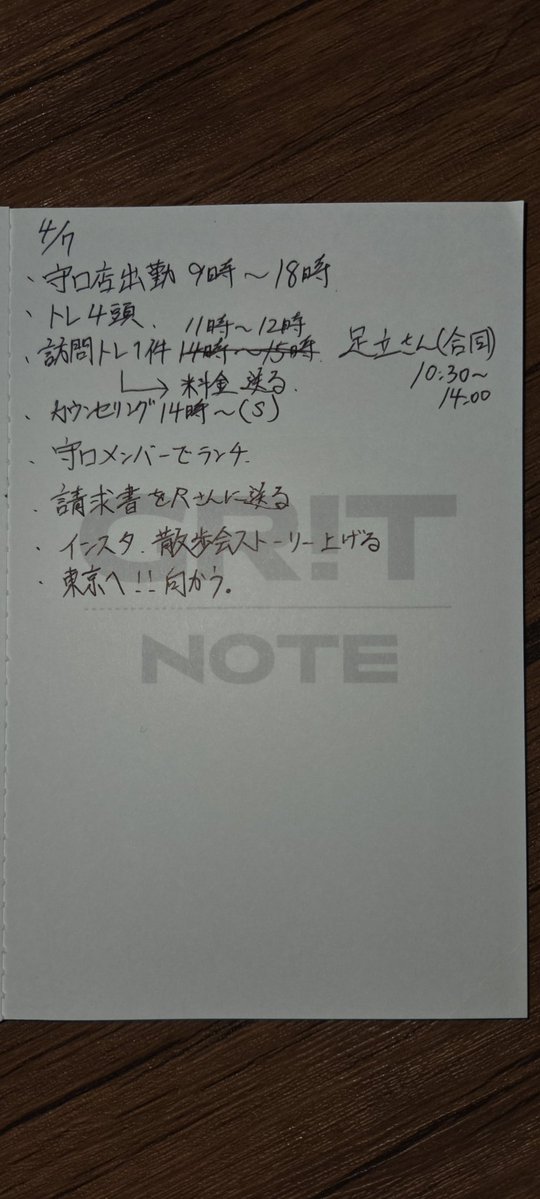 4/7
・守口店出勤 9時〜18時
・トレ4頭.
11時〜12時
・訪問トレ1件 14時〜15時. 足立さん(合同)
10:30〜
14:00
↳ 料金送る.
・カウンセリング14時〜(S)
・守口メンバーでランチ.
・請求書をRさんに送る
・インスタ.散歩会ストーリー上げる
・東京へ!!向かう。
GR!T
NOTE